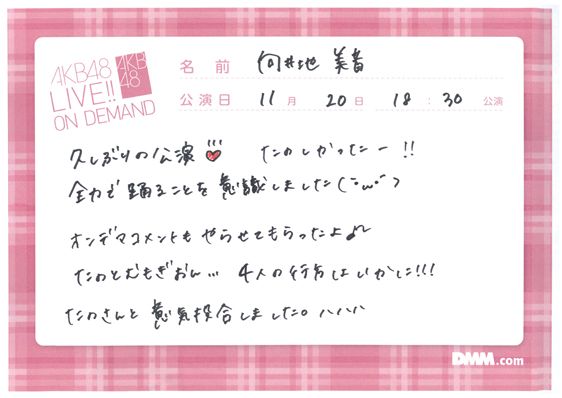 AKB48
LIVE!!
ON DEMAND
AKB
48
名 前 向井地 美音
公演日 11月 20日 18:30 公演
久しぶりの公演 たのしかったー!!
全力で踊ることを意識しました(˘ω˘)
オンデマコメントもやらせてもらったよ♪
たのとむぎぎおん... 4人の行方はいかに!!!
たのさんと意気投合しました。ハハハ
DMM.com